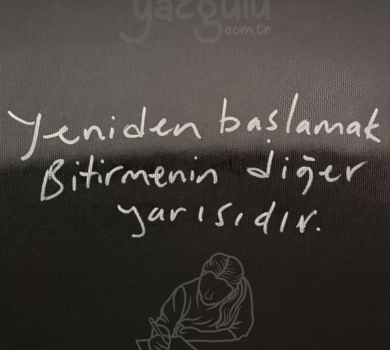 yazgülü
.com.tr
Yeniden başlamak
Bitirmenin diğer
yarısıdır.